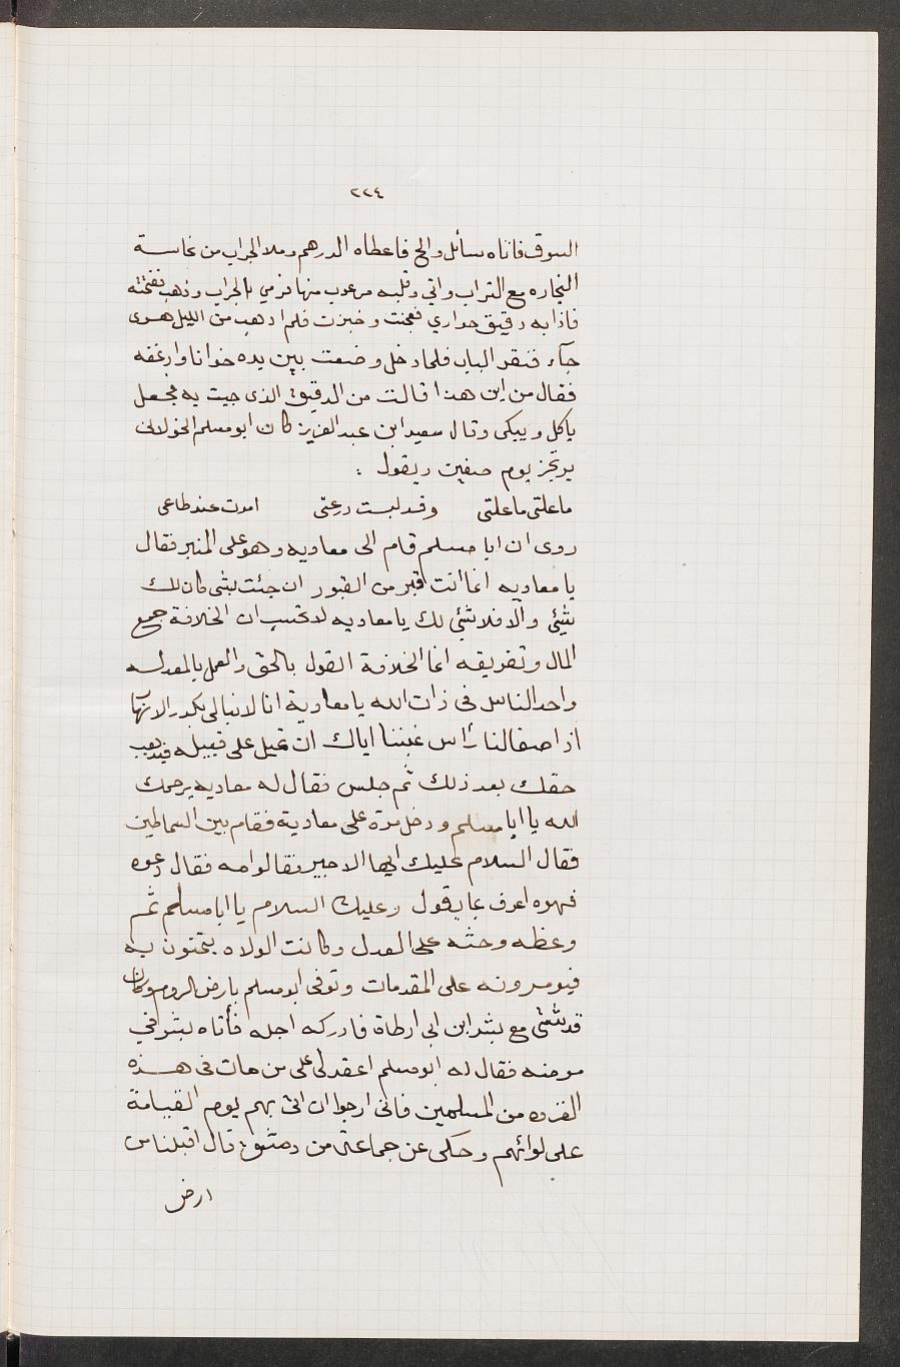 ٢٢٤
السوق فاتاه سائل والح فاعطاه الدرهم وملا الجراب من نحاسة
النجاره مع التراب واتى وقلبه مرعوب منها فرمي بالجراب وذهب ففتحته
فاذا به دقيق حواري فعجنت وخبزت فلما ذهب من الليل هوى
جآء فنقر الباب فلما دخل وضعت بين يده خوانا وارغفه
فقال من اين هذا قالت من الدقيق الذى جيت به فجعل
ياكل ويبكى وقال سعيد ابن عبد العزيز كان ابو مسلم الخولانى
يرتجز يوم صفين ويقول :
ما علتى ما علتى وقد لبست درعتى اموت عند طاعى
روى ان ابا مسلم قام الى معاويه وهو على المنبر فقال
يا معاويه انما انت قبر من القبور ان جئت بشى كان لك
شيئ والا فلا شيئ لك يا معاويه لا تحسب ان الخلافة جمع
المال وتفريقه انما الخلافة القول بالحق والعمل بالمعدله
واحد الناس فى ذات الله يا معاوية انا لا نبالى بكدر الانهآ
اذا صفا لنا رأس عيننا اياك ان تميل على قبيله فيذهب
حقك بعد ذلك ثم جلس فقال له معاويه يرحمك
الله يا ابا مسلم ودخل مرة على معاوية فقام بين السماطين
فقال السلام عليك ايها الاجير فقالوا مه فقال دعوه
فهوه اعرف بما يقول وعليك السلام يا ابا مسلم ثم
وعظه وحثه على العدل وكانت الولاه يتحنون به
فيومرونه على المقدمات وتوفى ابو مسلم بارض الروم وكان
قد شتى مع بشر ابن ابى ارطاة فادركه اجله فأتاه بشر في
مرضه فقال له ابو مسلم اعقد لى على من مات فى هذه
الغزوه من المسلمين فانى ارجوا ان اتى بهم يوم القيامة
على لوائهم وحكى عن جماعة من دمشق قال اقبلنا من
ارض